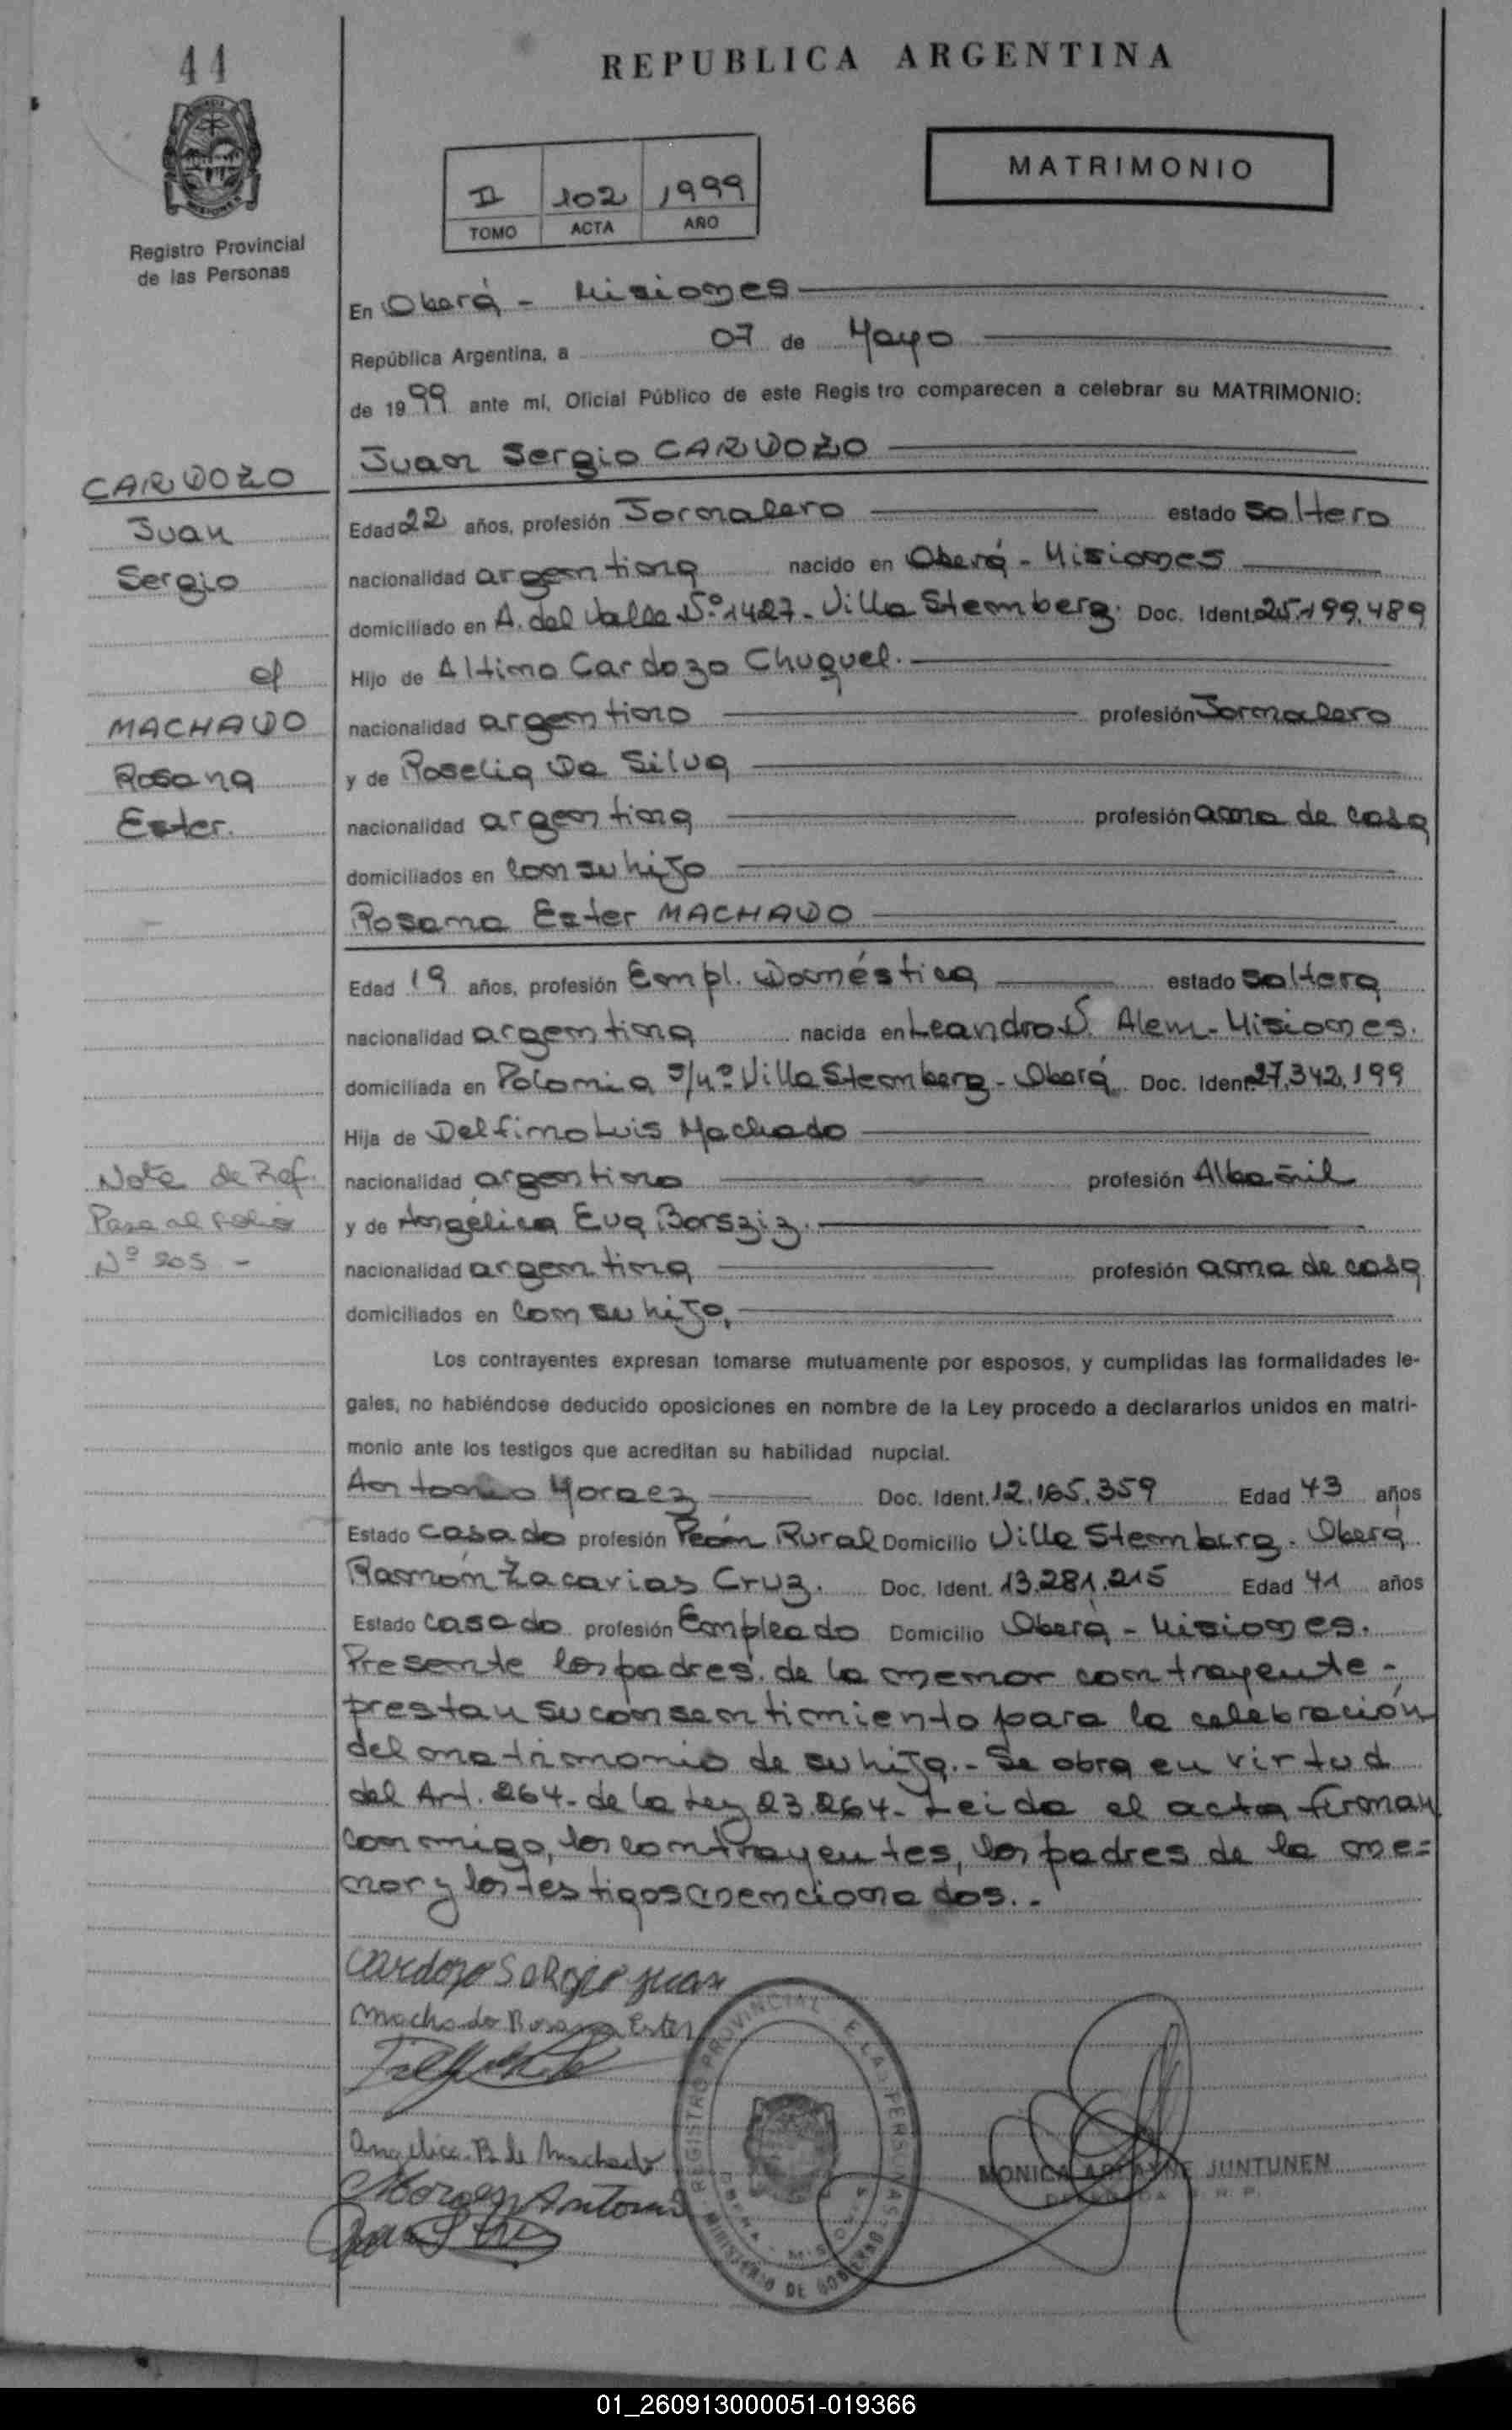 44
REPUBLICA ARGENTINA
MATRIMONIO
II 102 1999
TOMO ACTA AÑO
Registro Provincial
de las Personas
En Oberá - Misiones
República Argentina, a 07 de Mayo
de 1999 ante mí, Oficial Público de este Regis tro comparecen a celebrar su MATRIMONIO:
Juan Sergio CARDOZO
CARDOZO
Juan
Sergio
c/
MACHADO
Rosana
Ester.
Edad 22 años, profesión Jornalero estado soltero
nacionalidad argentina nacido en Oberá - Misiones
domiciliado en A. del Valle Nº 1427- Villa Stemberg. Doc. Ident. 25.199.489
Hijo de Altino Cardozo Chuquel.
nacionalidad argentino profesión Jornalero
y de Roselia Da Silva
nacionalidad argentina profesión ama de casa
domiciliados en con su hijo
Rosana Ester MACHADO
Edad 19 años, profesión Empl. Doméstica estado soltera
nacionalidad argentina nacida en Leandro N. Alem - Misiones.
domiciliada en Polonia s/nº Villa Stemberg - Oberá Doc. Ident. 27.342.199
Hija de Delfino Luis Machado
nacionalidad argentino profesión Albañil
y de Angélica Eva Borsziz.
nacionalidad argentina profesión ama de casa
domiciliados en con su hija,
Nota de Ref.
Pasa al folio
Nº 205 -
Los contrayentes expresan tomarse mutuamente por esposos, y cumplidas las formalidades le-
gales, no habiéndose deducido oposiciones en nombre de la Ley procedo a declararlos unidos en matri-
monio ante los testigos que acreditan su habilidad nupcial.
Antonio Moraez Doc. Ident. 12.165.359 Edad 43 años
Estado casado profesión Peón Rural Domicilio Villa Stemberg - Oberá
Ramón Zacarias Cruz. Doc. Ident. 13.281.215 Edad 41 años
Estado casado profesión Empleado Domicilio Oberá - Misiones.
Presente los padres de la menor contrayente -
prestan su consentimiento para la celebración
del matrimonio de su hija.- Se obra en virtud
del Art. 264- de la Ley 23.264- Leida el acta, firman
conmigo, los contrayentes, los padres de la me=
nor y los testigos mencionados..-
Cardozo Sergio Juan
Machado Rosana Ester
Angélica B. de Machado
Moraez Antonio
REGISTRO PROVINCIAL DE LAS PERSONAS
MINISTERIO DE GOBIERNO
MONICA JUNTUNEN
01_260913000051-019366